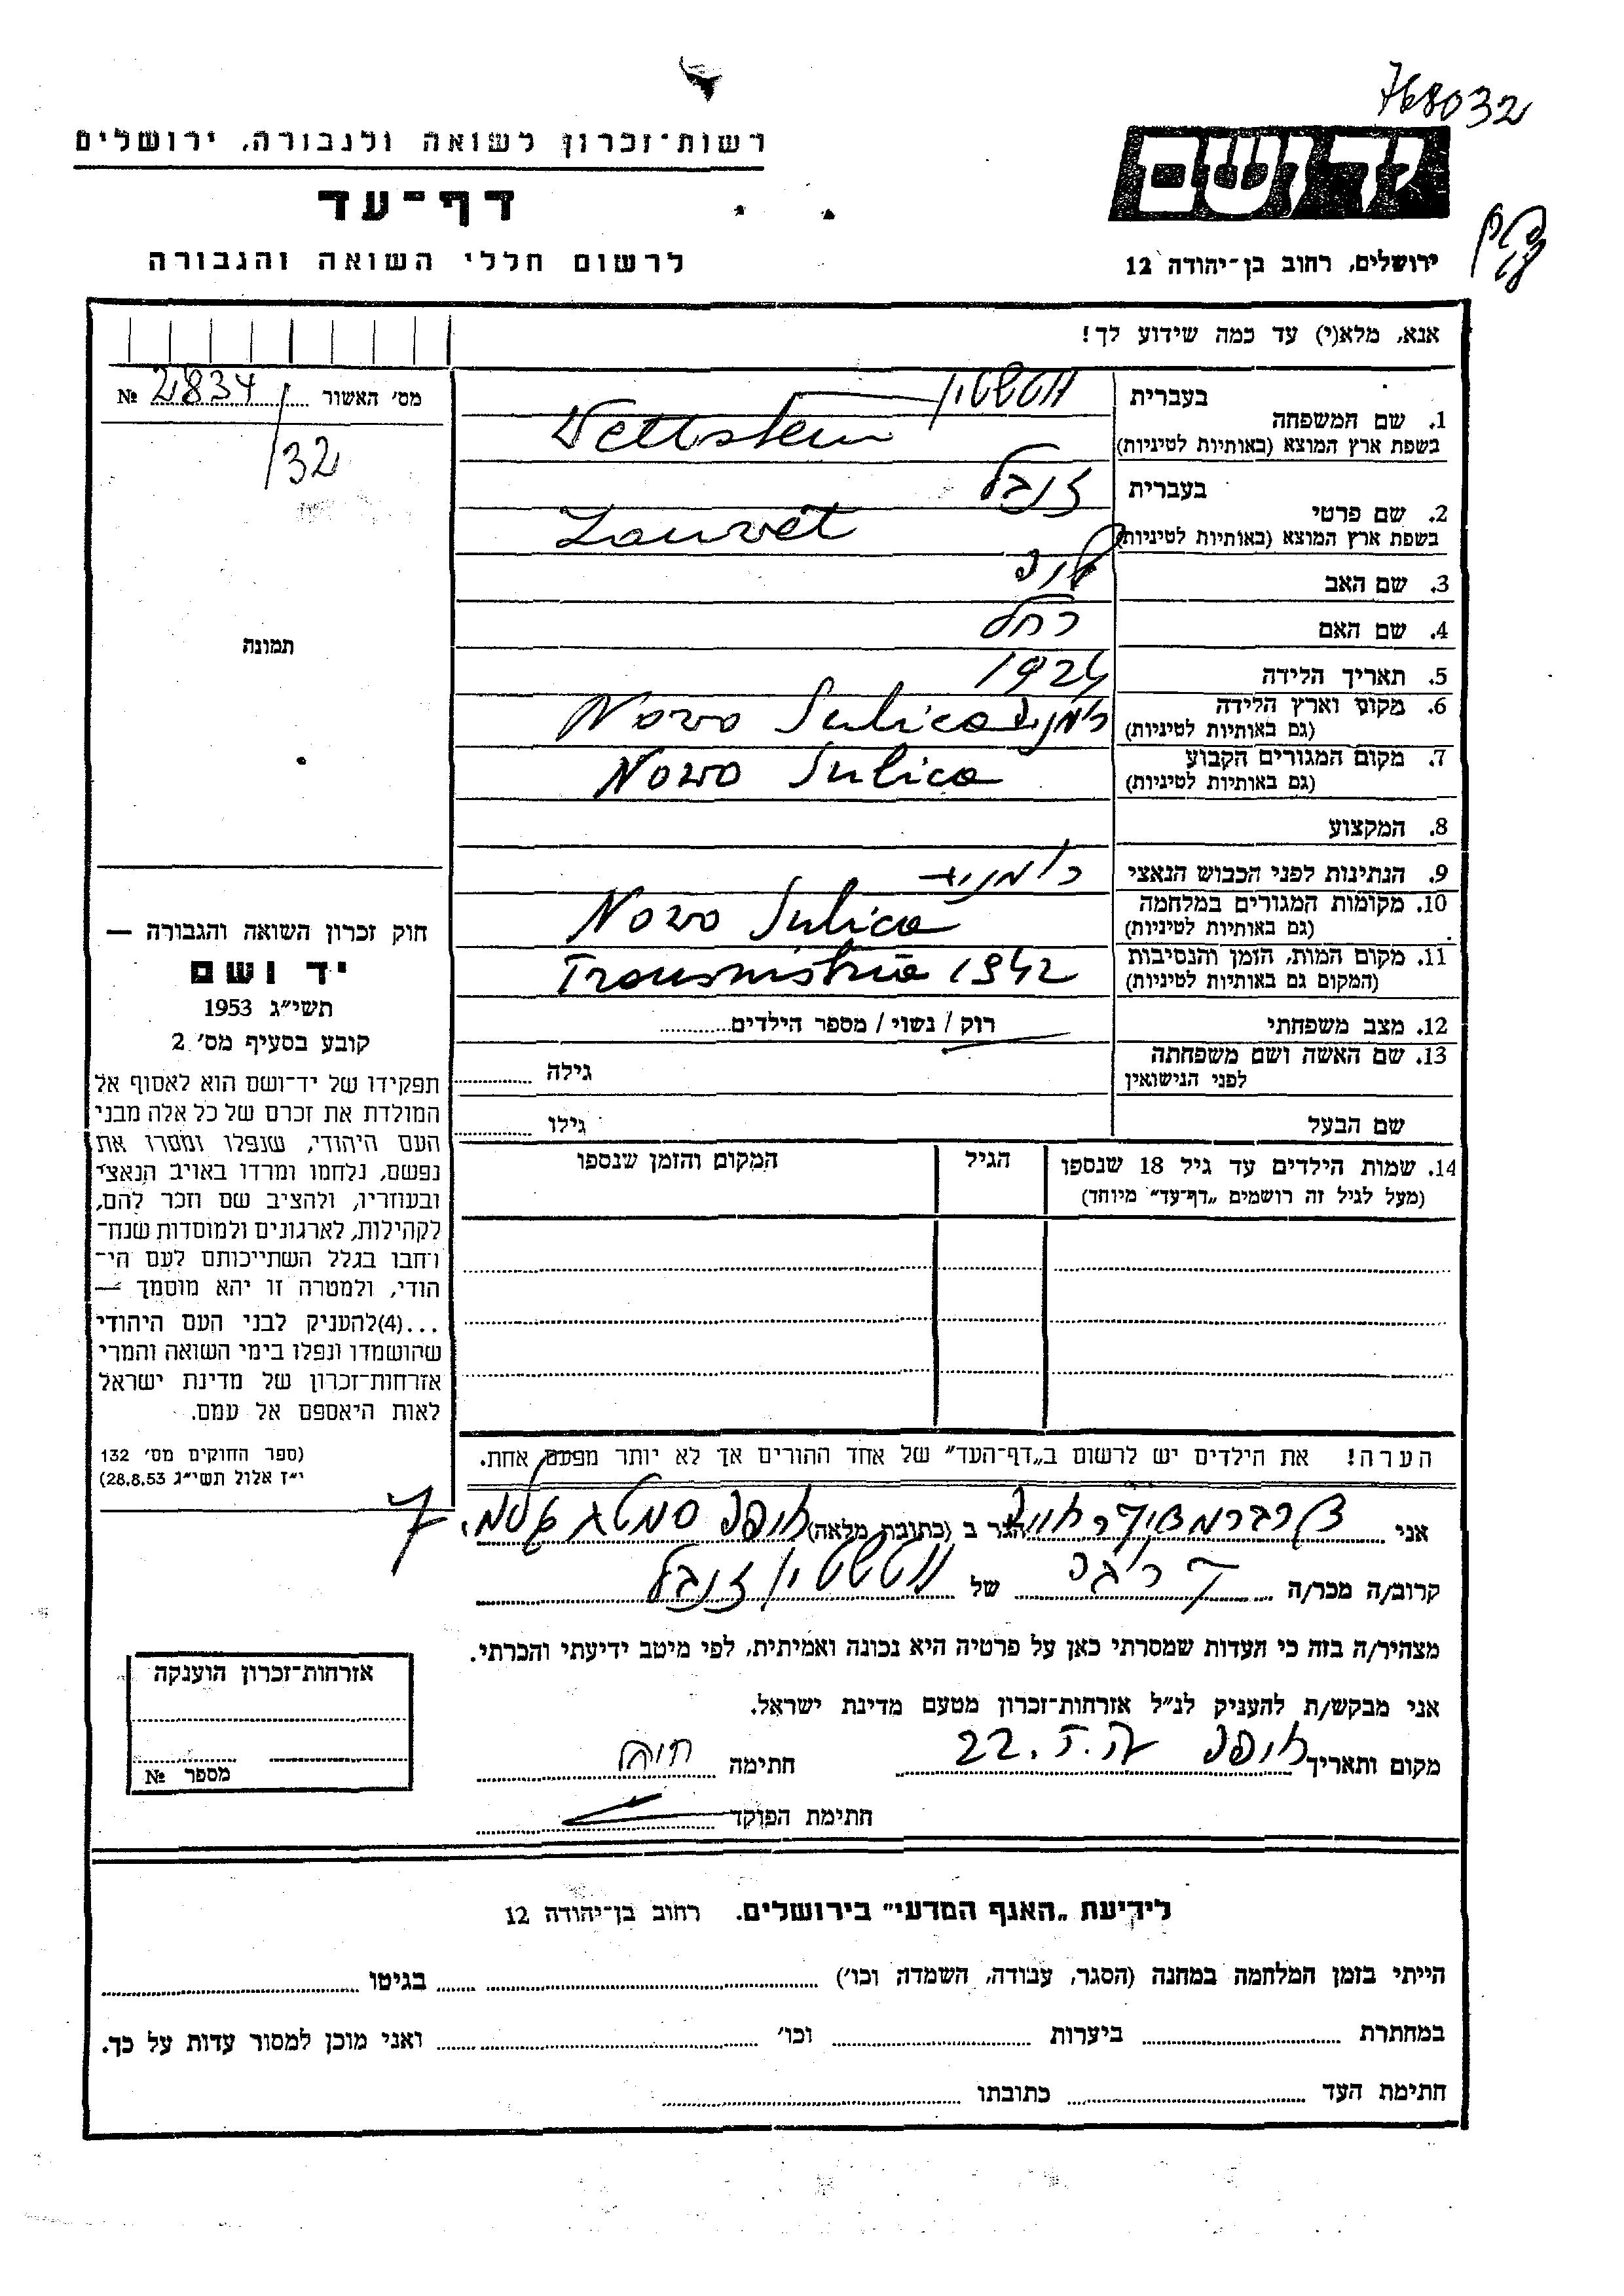 768032
רשות־זכרון לשואה ולגבורה, ירושלים
ידושם
דף־עד
לרשום חללי השואה והגבורה
ירושלים, רחוב בן־יהודה 12
אנא, מלא(י) עד כמה שידוע לך!
מס׳ האשור 2834 №
/32
תמונה
1. שם המשפחה
בעברית וטשטיין
בשפת ארץ המוצא (באותיות לטיניות) Vettstein
2. שם פרטי
בעברית זנבל
בשפת ארץ המוצא (באותיות לטיניות)
3. שם האב
4. שם האם רחל
5. תאריך הלידה 1924
6. מקום וארץ הלידה
(גם באותיות לטיניות) Novo Sulica רומניה
7. מקום המגורים הקבוע
(גם באותיות לטיניות) Nowo Sulica
8. המקצוע
9. הנתינות לפני הכבוש הנאצי רומניה
10. מקומות המגורים במלחמה
(גם באותיות לטיניות) Novo Sulica
11. מקום המות, הזמן והנסיבות
(המקום גם באותיות לטיניות) Transnistria 1942
12. מצב משפחתי רוק / נשוי / מספר הילדים
13. שם האשה ושם משפחתה
לפני הנישואין
גילה
שם הבעל
גילו
14. שמות הילדים עד גיל 18 שנספו
(מעל לגיל זה רושמים „דף־עד״ מיוחד)
הגיל
המקום והזמן שנספו
חוק זכרון השואה והגבורה —
יד ושם
תשי״ג 1953
קובע בסעיף מס׳ 2
תפקידו של יד־ושם הוא לאסוף אל
המולדת את זכרם של כל אלה מבני
העם היהודי, שנפלו ומסרו את
נפשם, נלחמו ומרדו באויב הנאצי
ובעוזריו, ולהציב שם וזכר להם,
לקהילות, לארגונים ולמוסדות שנח־
רחבו בגלל השתייכותם לעם הי־
הודי, ולמטרה זו יהא מוסמך —
...(4)להעניק לבני העם היהודי
שהושמדו ונפלו בימי השואה והמרי
אזרחות־זכרון של מדינת ישראל
לאות היאספם אל עמם.
(ספר החוקים מס׳ 132
י״ז אלול תשי״ג 28.8.53)
הערה! את הילדים יש לרשום ב„דף־העד״ של אחד ההורים אך לא יותר מפעם אחת.
אני הגר ב (כתובת מלאה) חיפה 7
קרוב/ה מכר/ה של וטשטיין זנבל
מצהיר/ה בזה כי העדות שמסרתי כאן על פרטיה היא נכונה ואמיתית, לפי מיטב ידיעתי והכרתי.
אני מבקש/ת להעניק לנ״ל אזרחות־זכרון מטעם מדינת ישראל.
מקום ותאריך חיפה 22. חתימה
חתימת הפוקד
אזרחות־זכרון הוענקה
מספר №
לידיעת „האגף המדעי״ בירושלים. רחוב בן־יהודה 12
הייתי בזמן המלחמה במחנה (הסגר, עבודה, השמדה וכו׳) בגיטו
במחתרת ביערות וכו׳ ואני מוכן למסור עדות על כך.
חתימת העד כתובתו